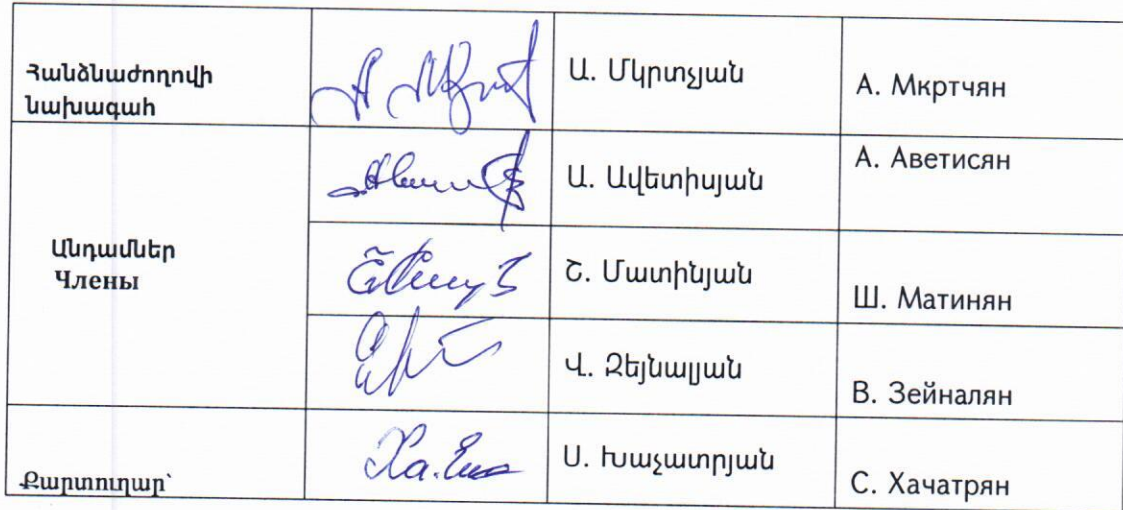 Հանձնաժողովի
նախագահ
Ա. Մկրտչյան
А. Мкртчян
Անդամներ
Члены
Ա. Ավետիսյան
А. Аветисян
Շ. Մատինյան
Ш. Матинян
Վ. Զեյնալյան
В. Зейналян
Քարտուղար՝
Ս. Խաչատրյան
С. Хачатрян